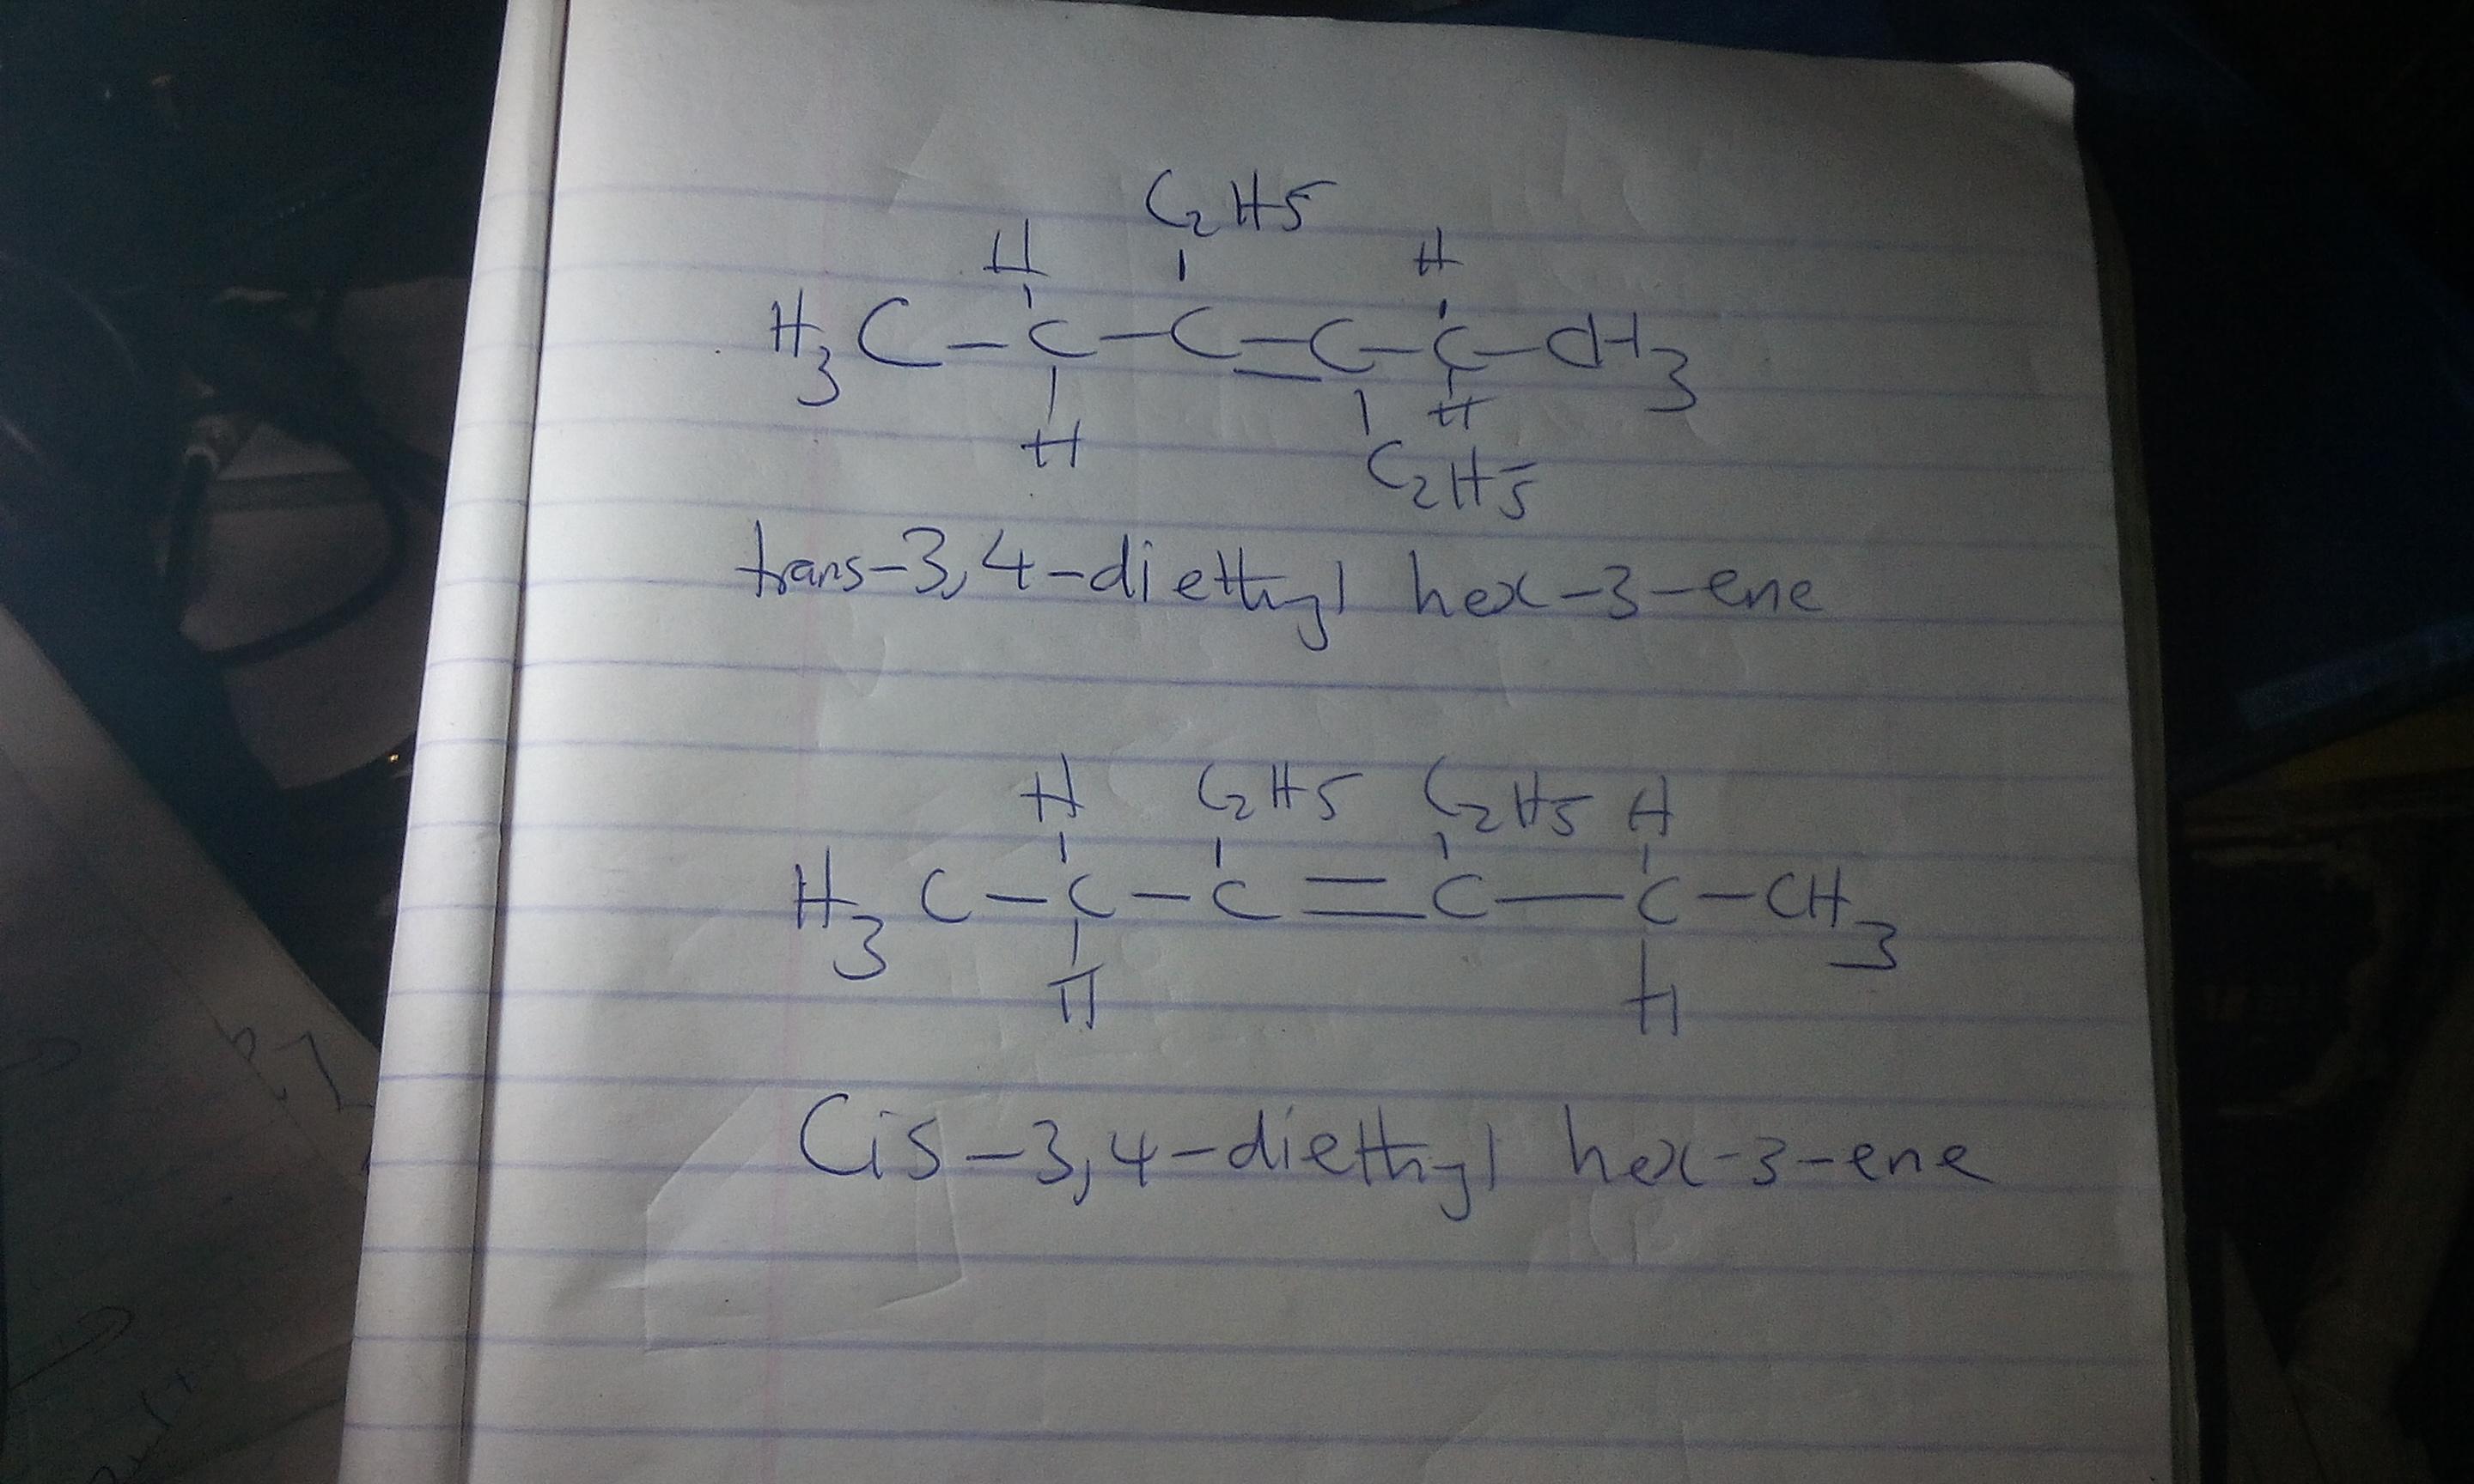 C2H5
H H
H3C-C-C=C-C-CH3
H H
C2H5
trans-3,4-diethyl hex-3-ene
H C2H5 C2H5 H
H3C-C-C=C-C-CH3
H H
Cis-3,4-diethyl hex-3-ene